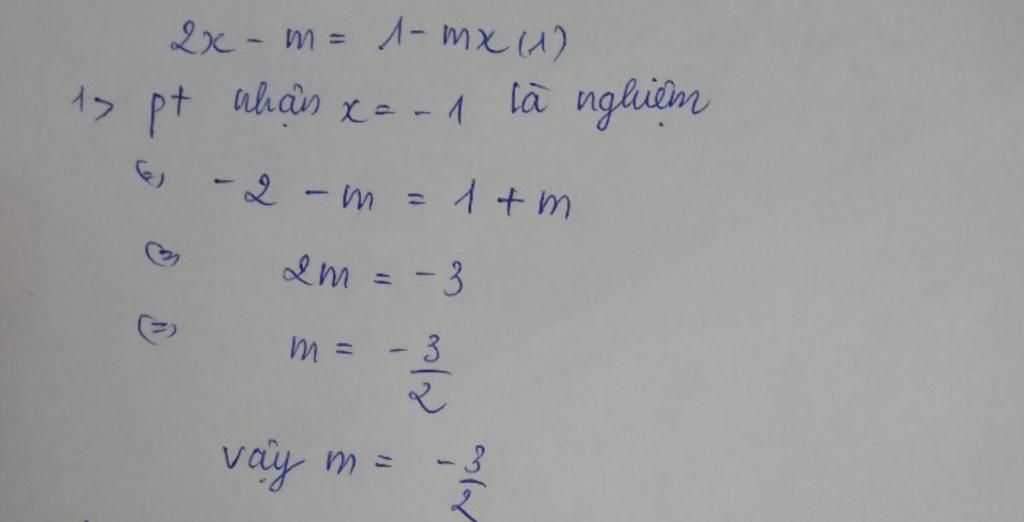 2x - m = 1 - mx (1)
1> pt nhận x = -1 là nghiệm
(=) -2 - m = 1 + m
(=) 2m = -3
(=) m = -3/2
vậy m = -3/2